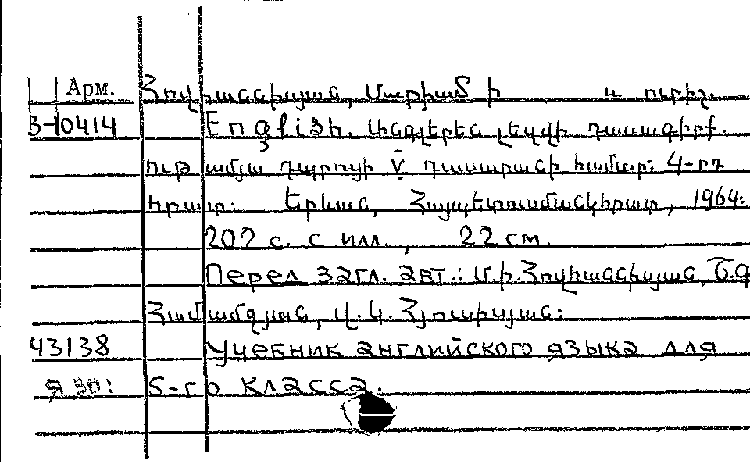 Арм. Հովհաննիսյան, Մարիամ Ի և ուրիշ.
3-10414 English. Անգլերեն լեզվի դասագիրք.
ութ ամյա դպրոցի V դասարանի համար: 4-րդ
հրատ: Երևան, Հայպետուսմանկհրատ, 1964:
202 с. с илл., 22 см.
Перед загл. авт.: Մ.Ի.Հովհաննիսյան, Շ.Գ
Համամջյան, Վ.Կ.Հյուսիսյան:
43138 Учебник английского языка для
5-го класса.